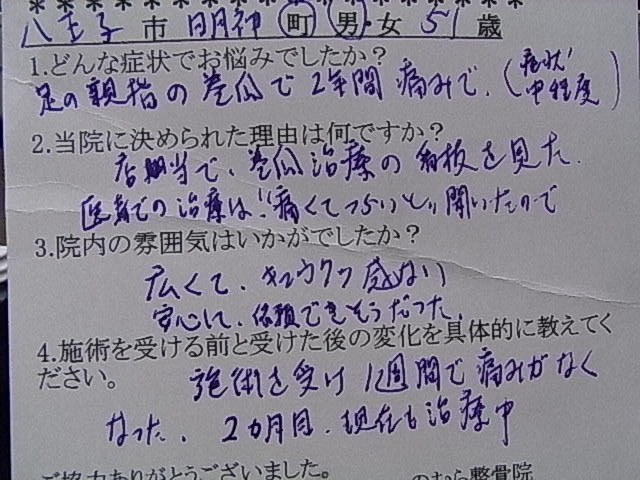 ＊＊＊＊＊＊＊＊＊＊＊＊＊＊＊＊＊＊
八王子 市 明神 町 男・女 51 歳
1.どんな症状でお悩みでしたか？
足の親指の巻爪で2年間痛みで、(症状 中程度)
2.当院に決められた理由は何ですか？
で、巻爪治療の看板を見た、
医者での治療は、痛くてつらいと聞いたので
3.院内の雰囲気はいかがでしたか？
広くて、キュウクツ感ない
安心して、依頼できそうだった。
4.施術を受ける前と受けた後の変化を具体的に教えてく
ださい。
施術を受け1週間で痛みがなく
なった、2カ月目、現在も治療中
ご協力ありがとうございました。 のむら整骨院